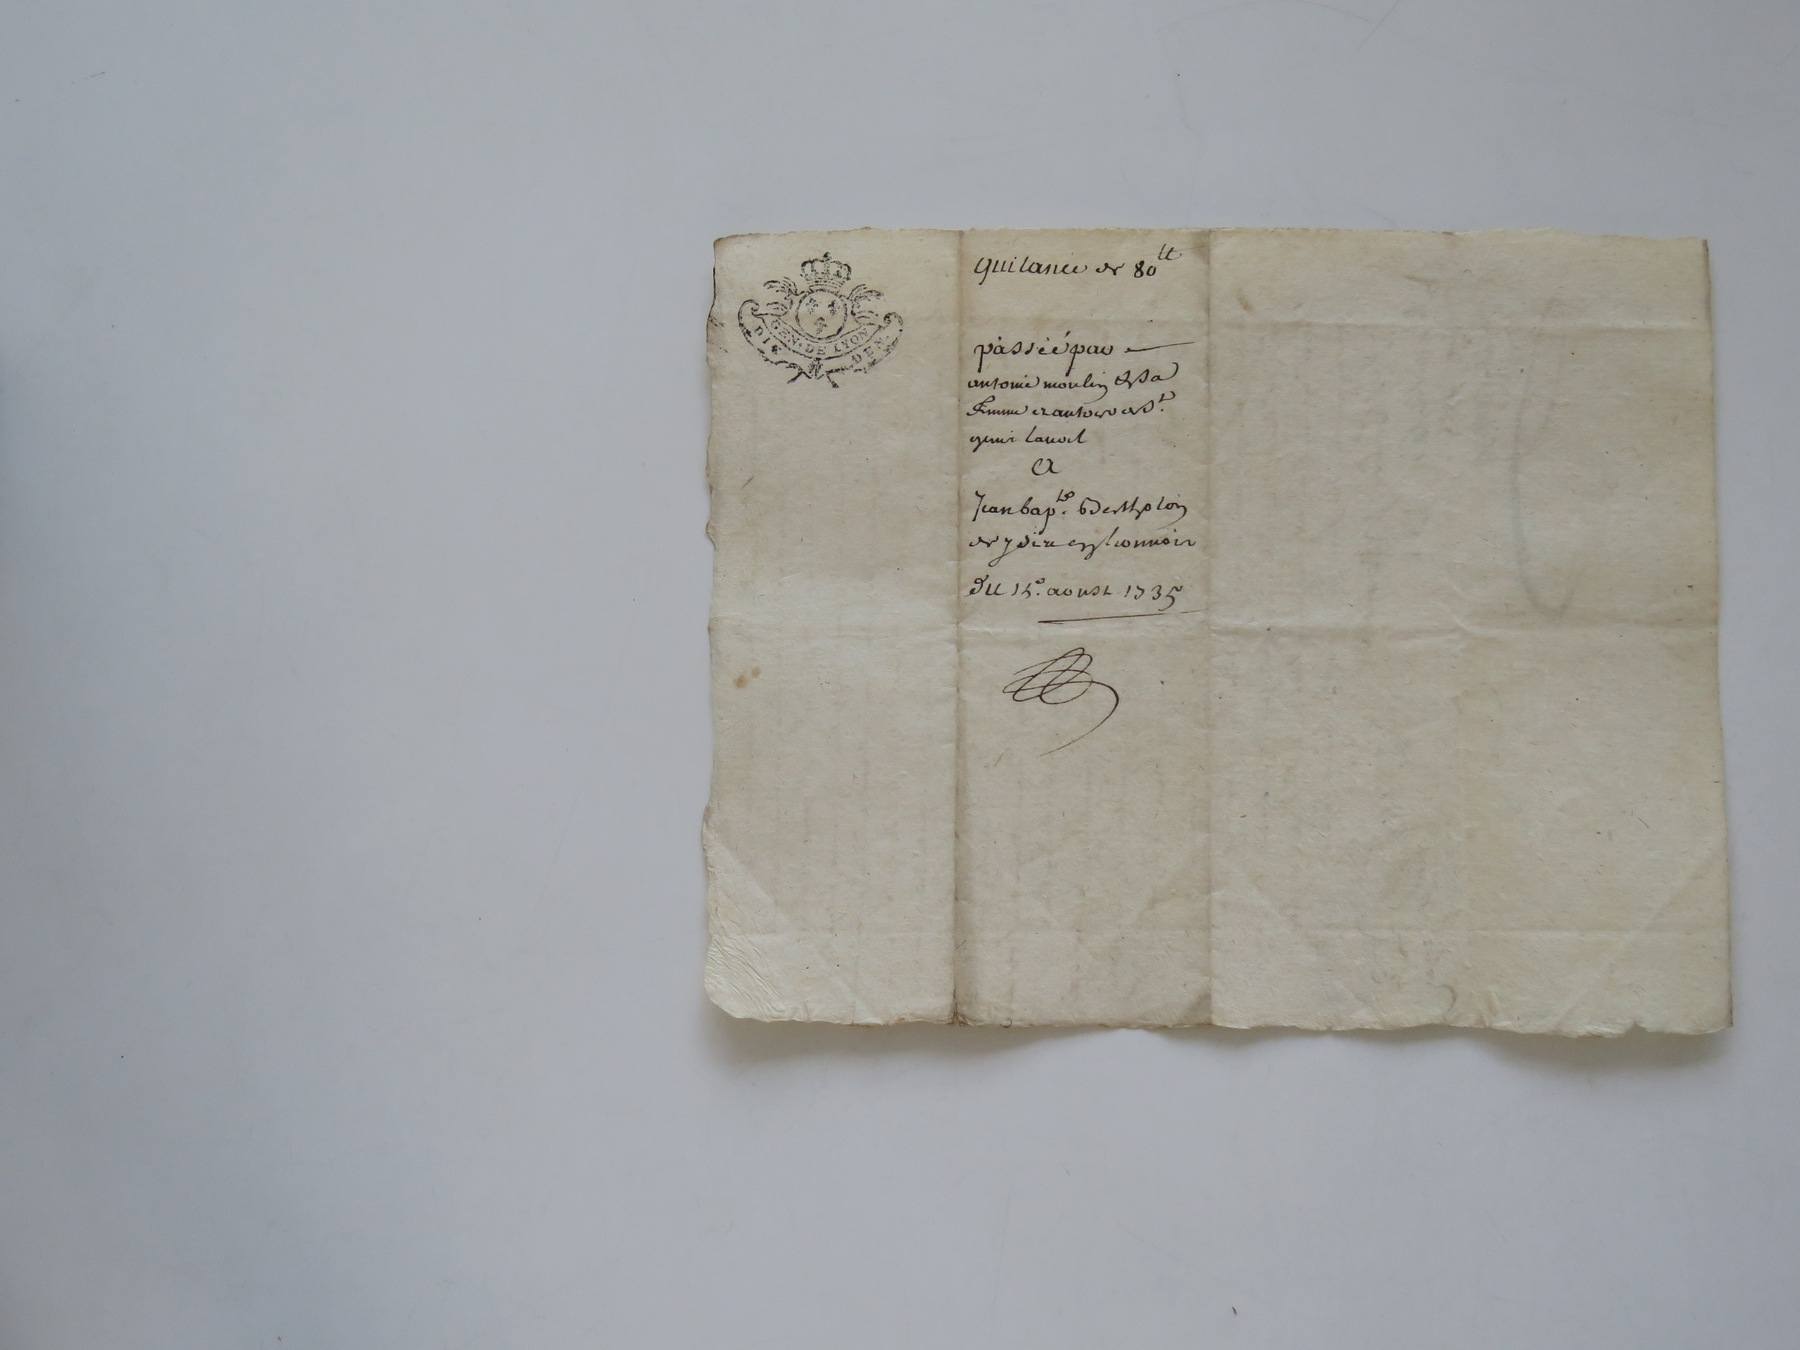 GEN. DE LYON
DIX DEN.
quitance de 80 lt
passéé par
antoine moulin & sa
femme et autors de St.
genis lavol
a
Jean bapte. Bertholon
de
du 15e. aoust 1735